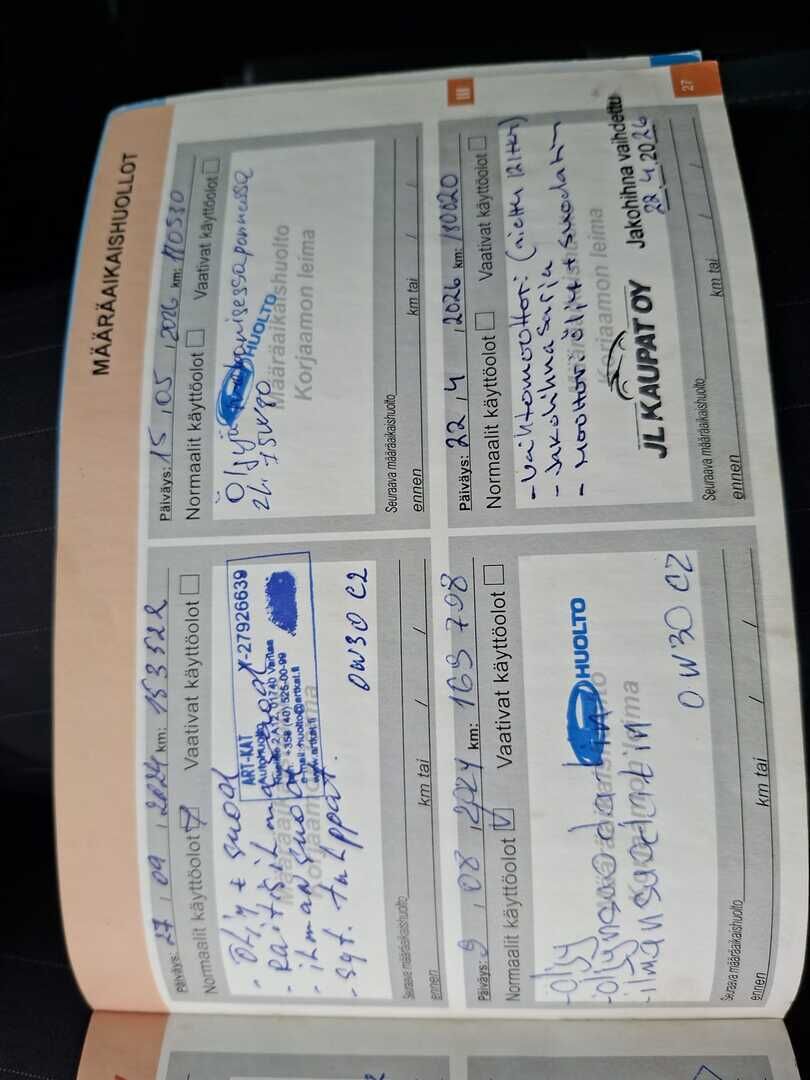 MÄÄRÄAIKAISHUOLLOT
Päiväys: 27 , 09 , 2024 km: 153522
Normaalit käyttöolot ☑ Vaativat käyttöolot ☐
- Öljy + suod
- Raitisilmasuod
- ilmansuod
- Syt. tulppat.
OW30 C2
ART-KAT Y-27926639
Autohuolto
2 A 12, 01740 Vantaa
+358 (40) 525-00-99
e-mail: huolto@artkat.fi
www.artkat.fi
Määräaikaishuolto
Korjaamon leima
Seuraava määräaikaishuolto
ennen km tai / /
Päiväys: 15 , 05 , 2026 km: 180530
Normaalit käyttöolot ☐ Vaativat käyttöolot ☐
Öljyä
2L. 75W80
HUOLTO
Määräaikaishuolto
Korjaamon leima
Seuraava määräaikaishuolto
ennen km tai / /
Päiväys: 9 , 08 , km: 169798
Normaalit käyttöolot ☑ Vaativat käyttöolot ☐
- Öljy
- Öljynsuodatin
- ilmansuodatin
OW30 C2
HUOLTO
Määräaikaishuolto
Korjaamon leima
Seuraava määräaikaishuolto
ennen km tai / /
Päiväys: 22 , 4 , 2026 km: 180020
Normaalit käyttöolot ☐ Vaativat käyttöolot ☐
- Vaihtomoottori
- Jakohihnasarja
- Moottoriöljyt + suodatin
Korjaamon leima
JL KAUPAT OY
Jakohihna vaihdettu
22.4.2026
Seuraava määräaikaishuolto
ennen km tai / /
III
27